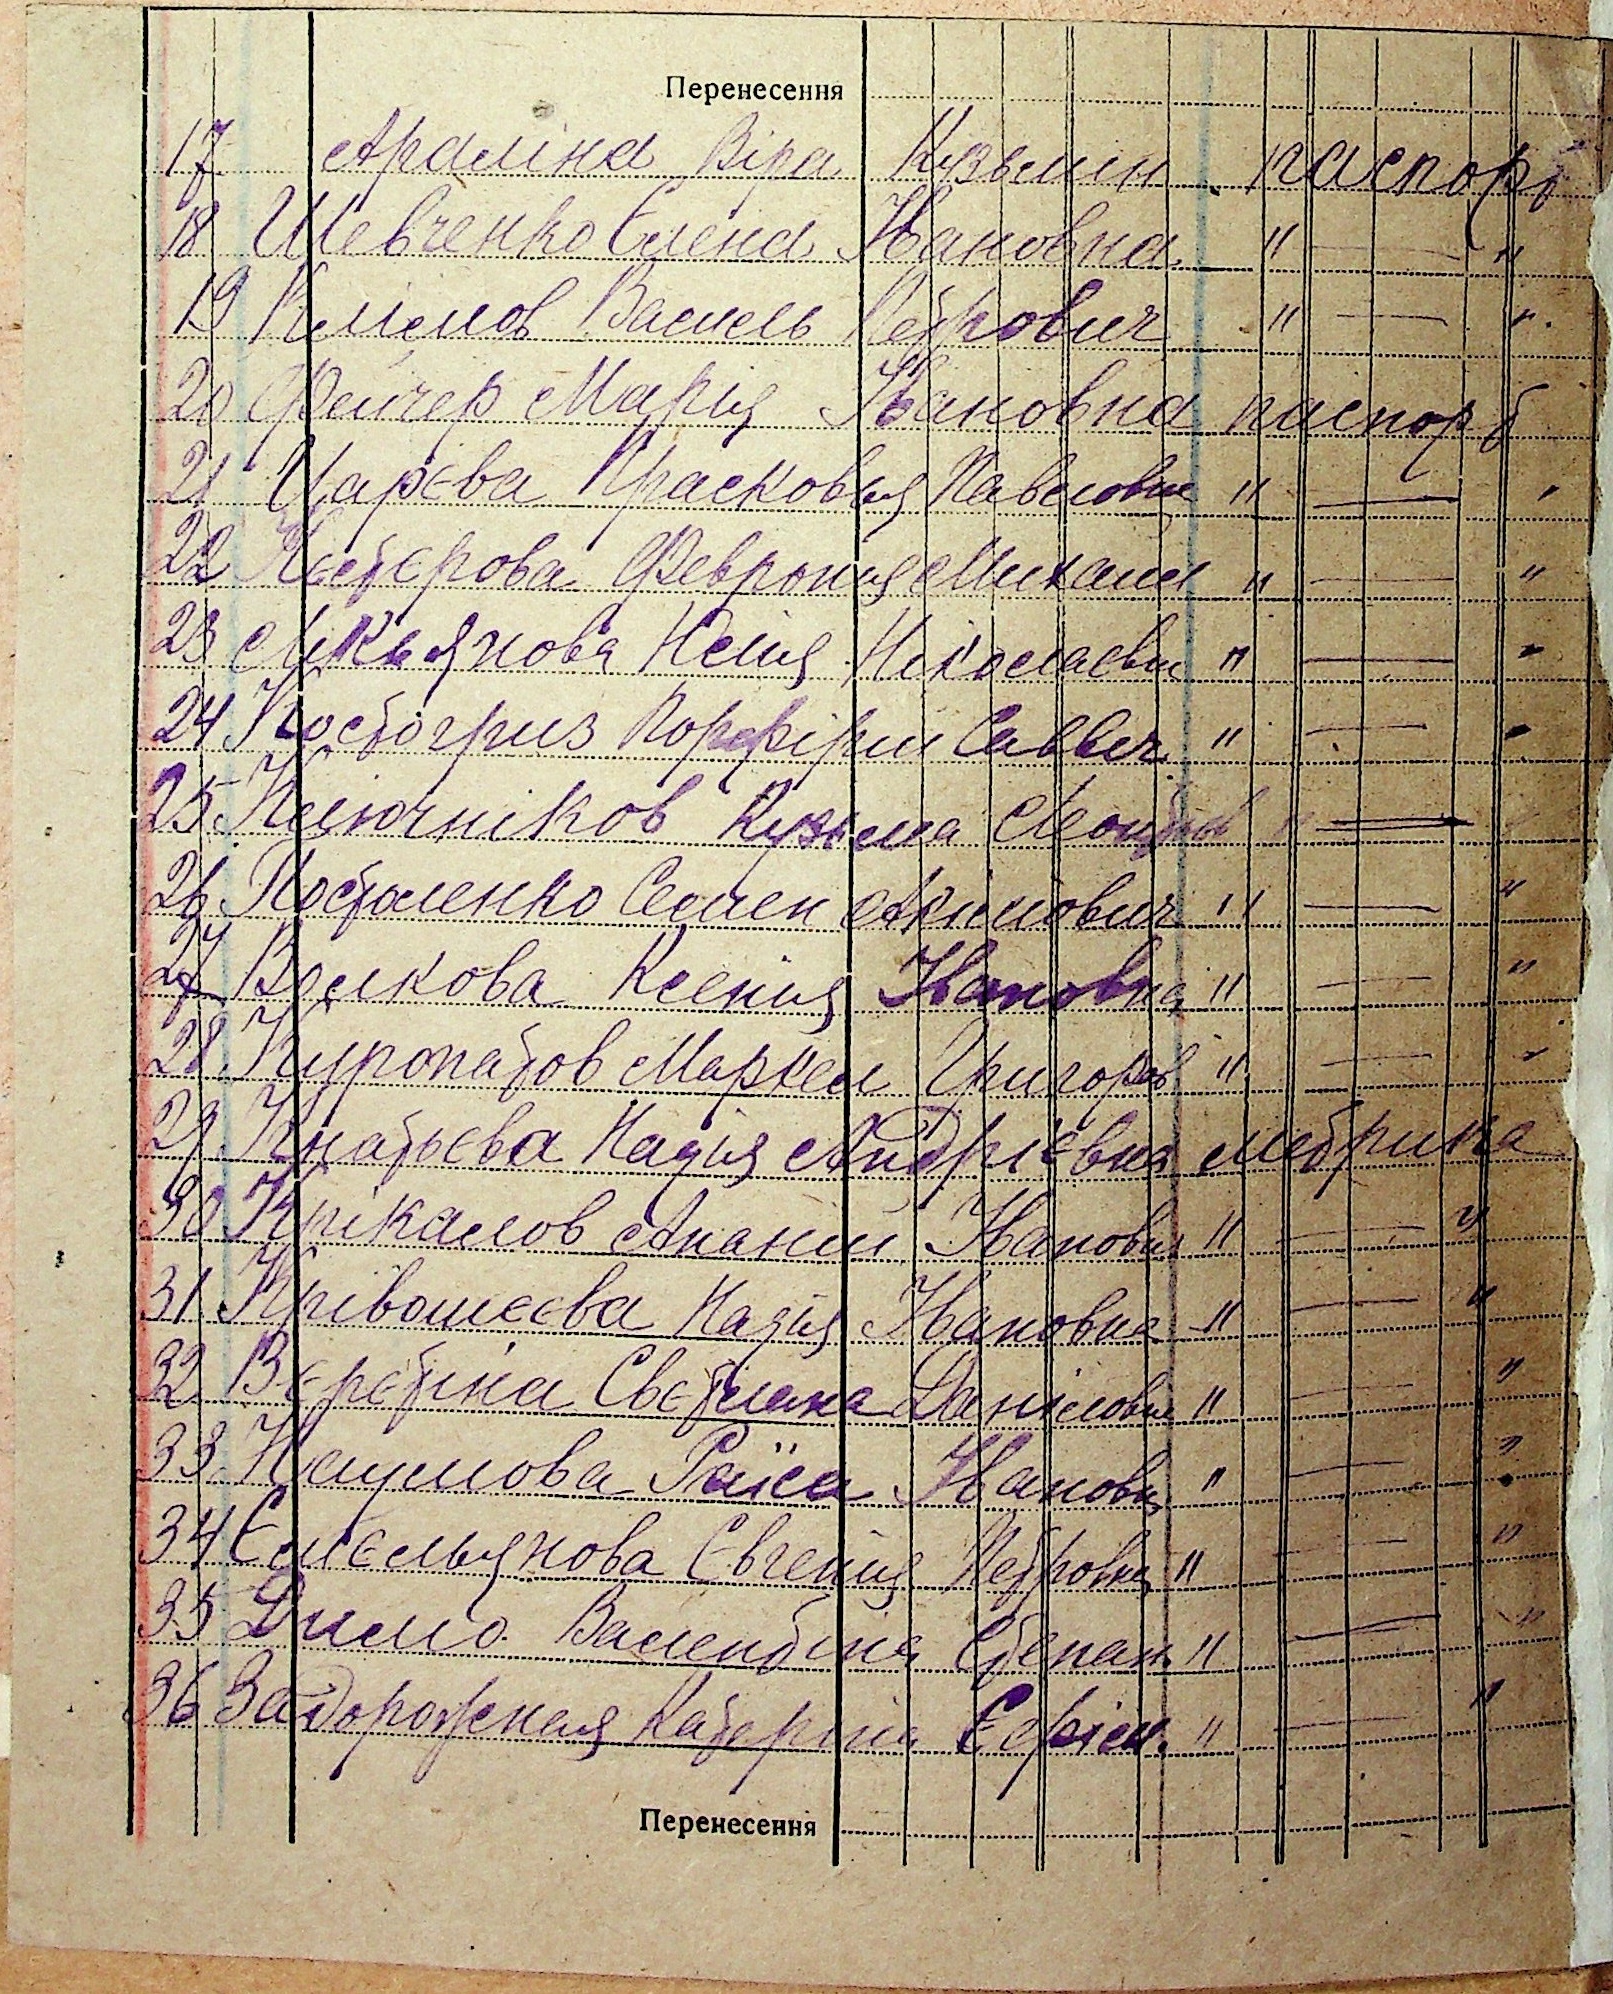 Перенесення
17 Араліна Віра Кузьмин паспорт
18 Шевченко Єлена Івановна " — "
19 Клімов Василь Петрович " — "
20 Фейчер Марія Івановна паспорт
21 Царєва Прасковья Павловна " — "
22 Нєстєрова Февронія Михайл " — "
23 Лук'янова Юлія Ніколаєвна " — "
24 Костогриз Порфірий Саввич " — "
25 Ключніков Кузьма " — "
26 Постоленко Семен Акімович " — "
27 Волкова Ксенія Івановна " — "
28 Куропатов Маркел Григоров " — "
29 Ігнатьєва Надія Андрієвна метрика
30 Крікалов Ананій Іванович " — "
31 Крівошеєва Надія Івановна " — "
32 Вєрєтіна Свєтлана Данілов " — "
33 Наумова Раїса Івановн " — "
34 Ємєльянова Євгенія Петровна " — "
35 Димо Валентіна Степан. " — "
36 Задорожная Катеріна Єфрім. " — "
Перенесення